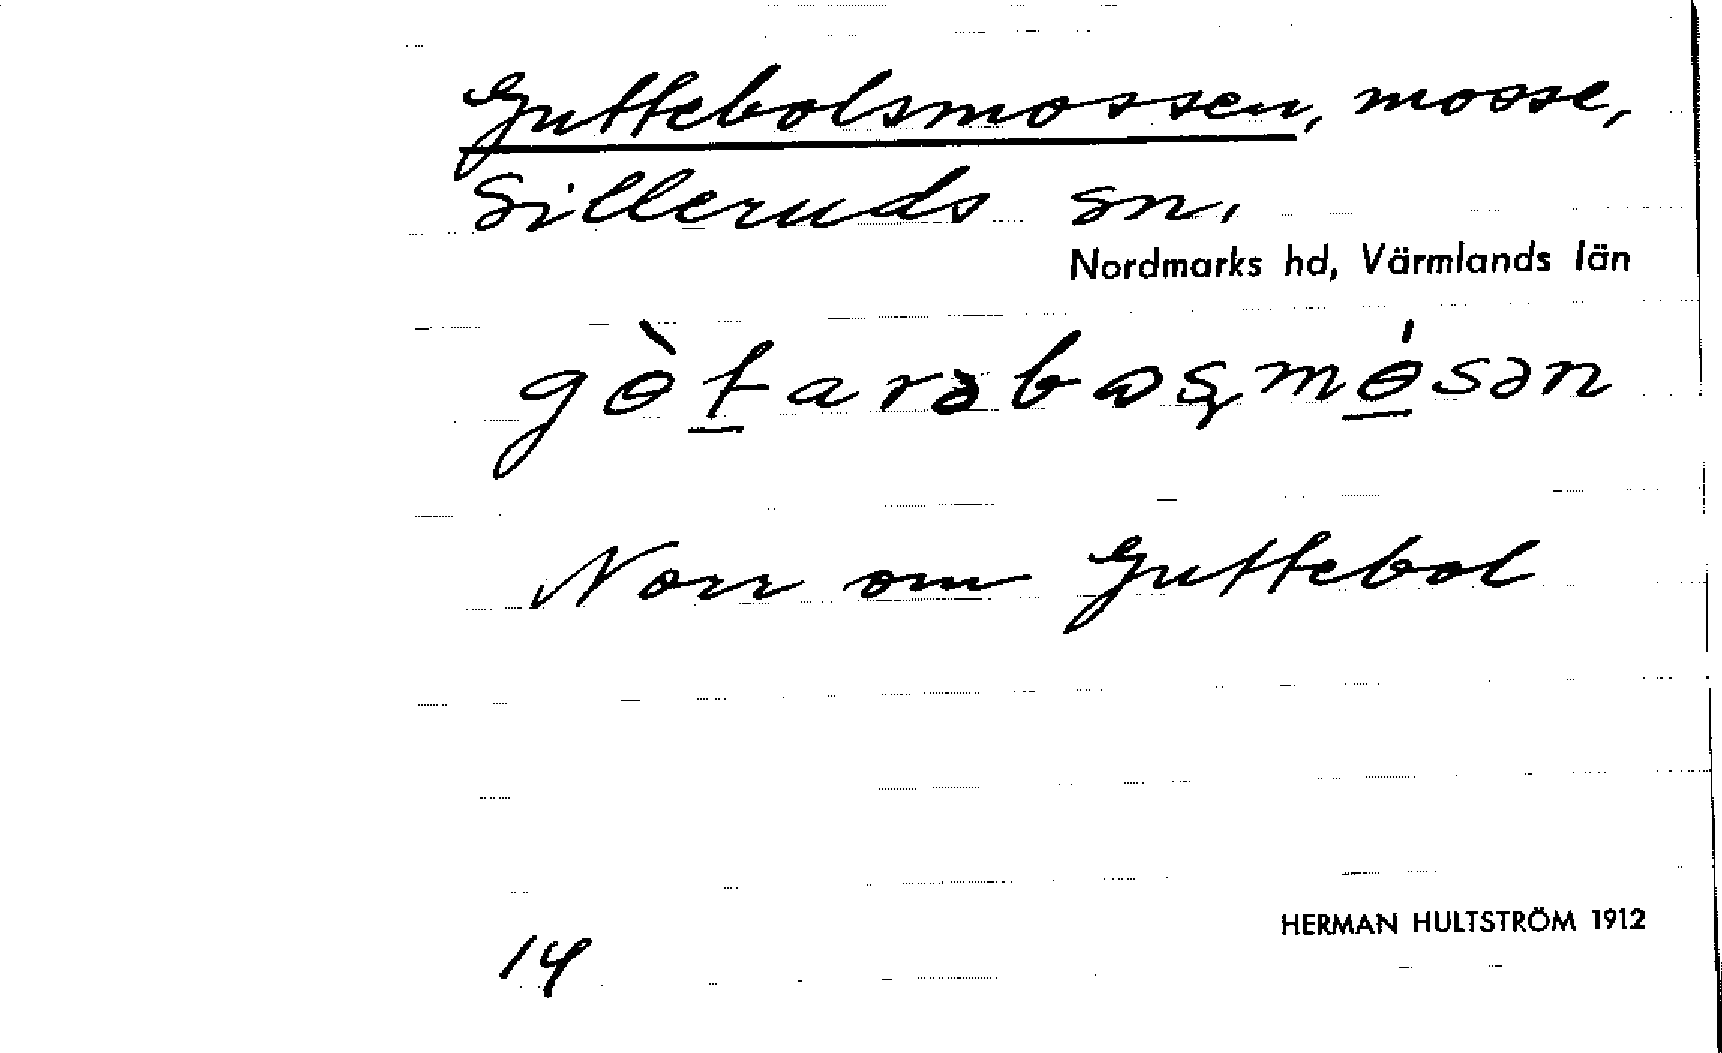 Guttebolsmossen, mosse,
Silleruds sn.
Nordmarks hd, Värmlands län
gɵ̀t̲arəbɷʂmɵ̲́sən
Norr om Guttebol
HERMAN HULTSTRÖM 1912
14